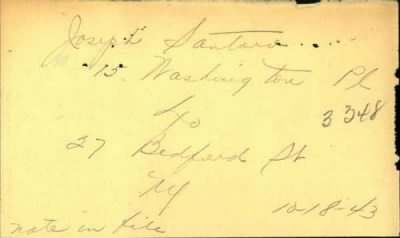 Joseph Santora ....
15 Washington Pl
to
3348
27 Bedford St
NY
10-18-43
note in file